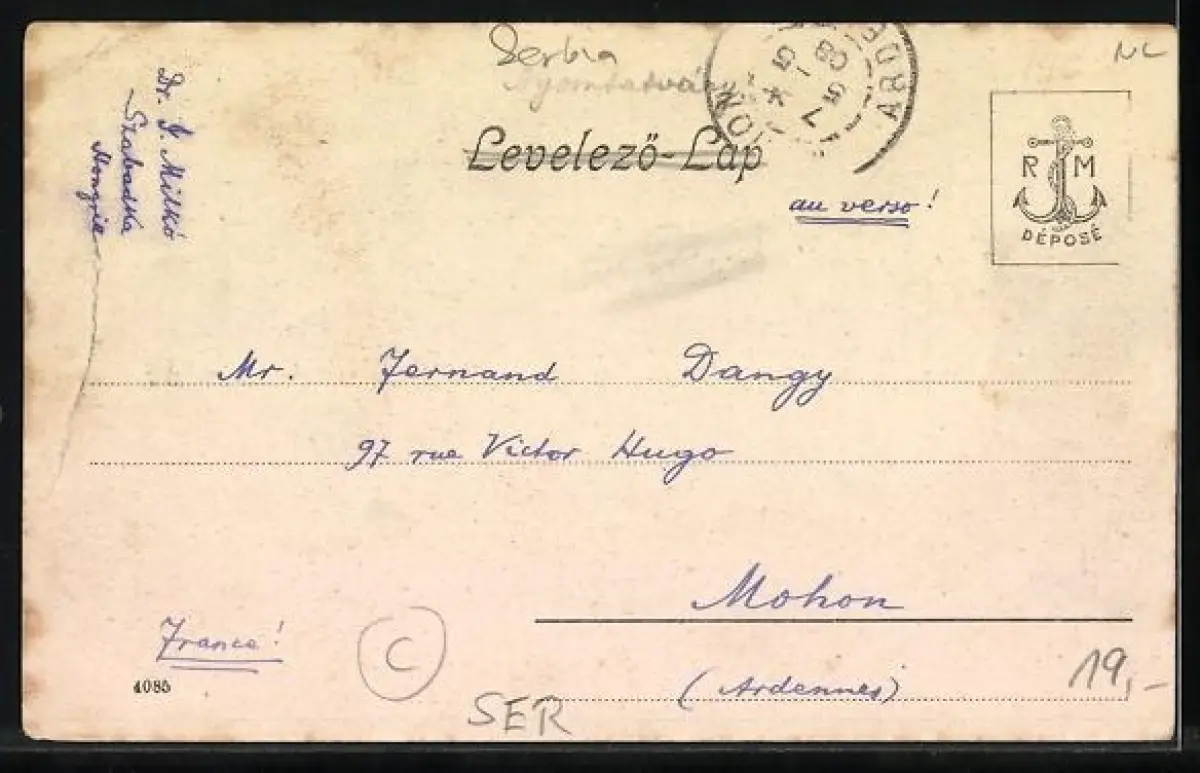 Serbia
Nyomtatvány
NL
Levelező-Lap
au verso!
R M
DÉPOSÉ
Dr. J. Milkó
Szabadka
Hongrie
Mr. Fernand Dangy
97 rue Victor Hugo
Mohon
(Ardennes)
France!
C
4085
SER
19,-